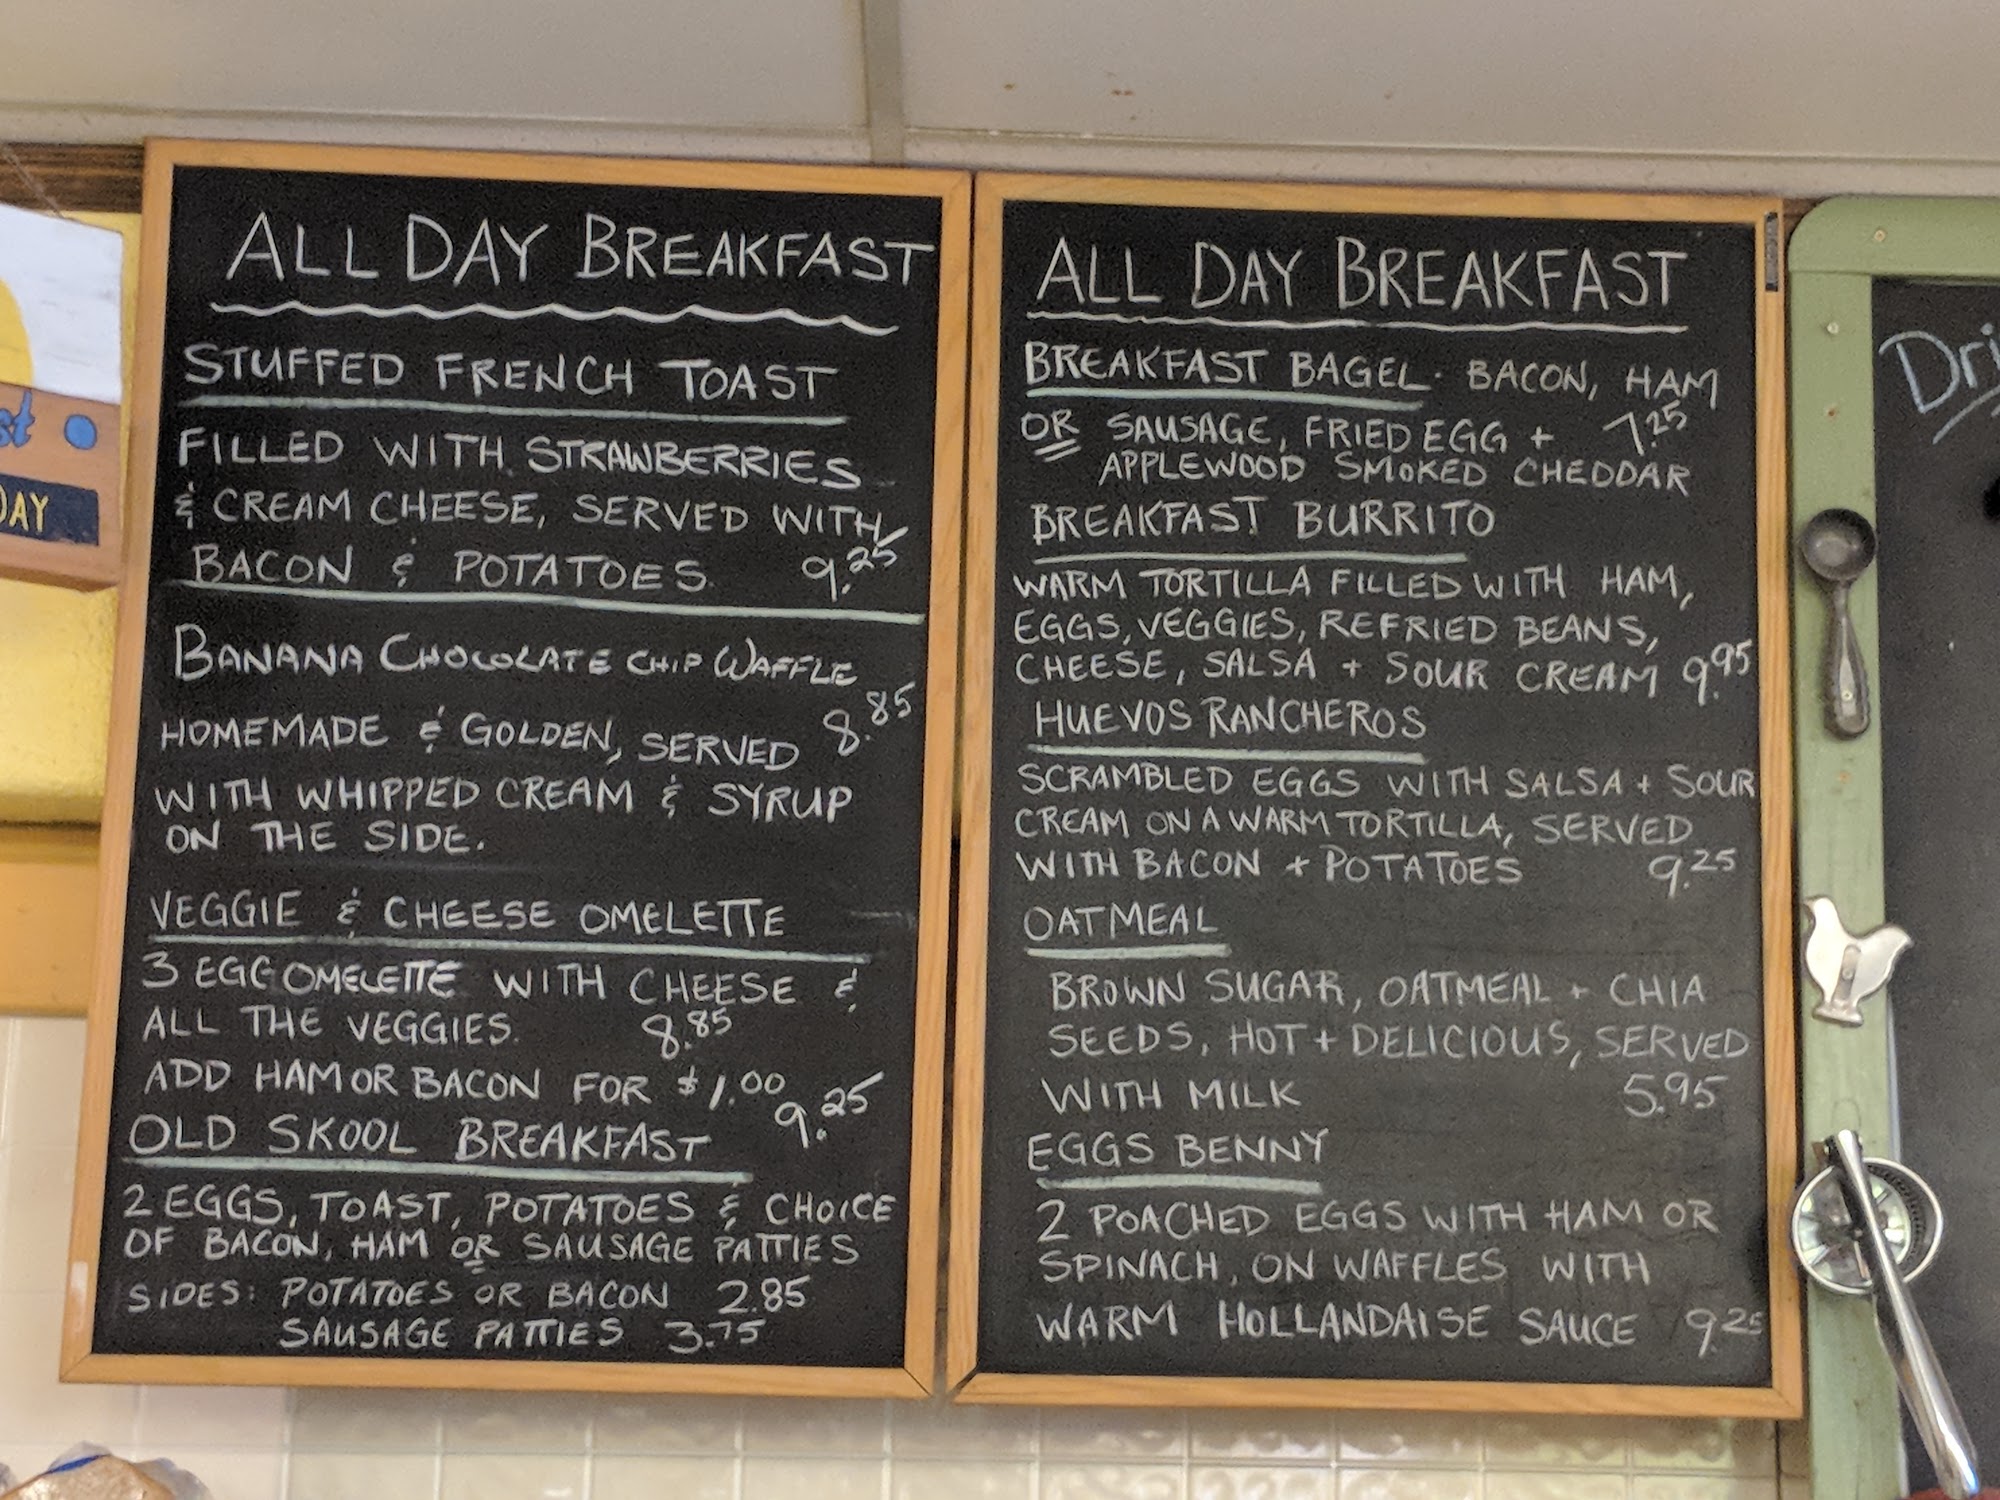 ALL DAY BREAKFAST
STUFFED FRENCH TOAST
FILLED WITH STRAWBERRIES
& CREAM CHEESE, SERVED WITH
BACON & POTATOES 9.25
BANANA CHOCOLATE CHIP WAFFLE
HOMEMADE & GOLDEN, SERVED 8.85
WITH WHIPPED CREAM & SYRUP
ON THE SIDE.
VEGGIE & CHEESE OMELETTE
3 EGG OMELETTE WITH CHEESE &
ALL THE VEGGIES. 8.85
ADD HAM OR BACON FOR $1.00
OLD SKOOL BREAKFAST 9.25
2 EGGS, TOAST, POTATOES & CHOICE
OF BACON, HAM OR SAUSAGE PATTIES
SIDES: POTATOES OR BACON 2.85
SAUSAGE PATTIES 3.75
ALL DAY BREAKFAST
BREAKFAST BAGEL. BACON, HAM
OR SAUSAGE, FRIED EGG + 7.25
APPLEWOOD SMOKED CHEDDAR
BREAKFAST BURRITO
WARM TORTILLA FILLED WITH HAM,
EGGS, VEGGIES, REFRIED BEANS,
CHEESE, SALSA + SOUR CREAM 9.95
HUEVOS RANCHEROS
SCRAMBLED EGGS WITH SALSA + SOUR
CREAM ON A WARM TORTILLA, SERVED
WITH BACON + POTATOES 9.25
OATMEAL
BROWN SUGAR, OATMEAL + CHIA
SEEDS, HOT + DELICIOUS, SERVED
WITH MILK 5.95
EGGS BENNY
2 POACHED EGGS WITH HAM OR
SPINACH, ON WAFFLES WITH
WARM HOLLANDAISE SAUCE 9.25
st
DAY
Dri